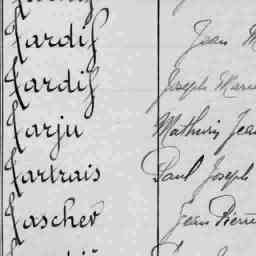 Tardif Jean M
Tardif Joseph Marie
Tarju Mathurin Jean
Tartrais Paul Joseph
Tascher Jean Pierre